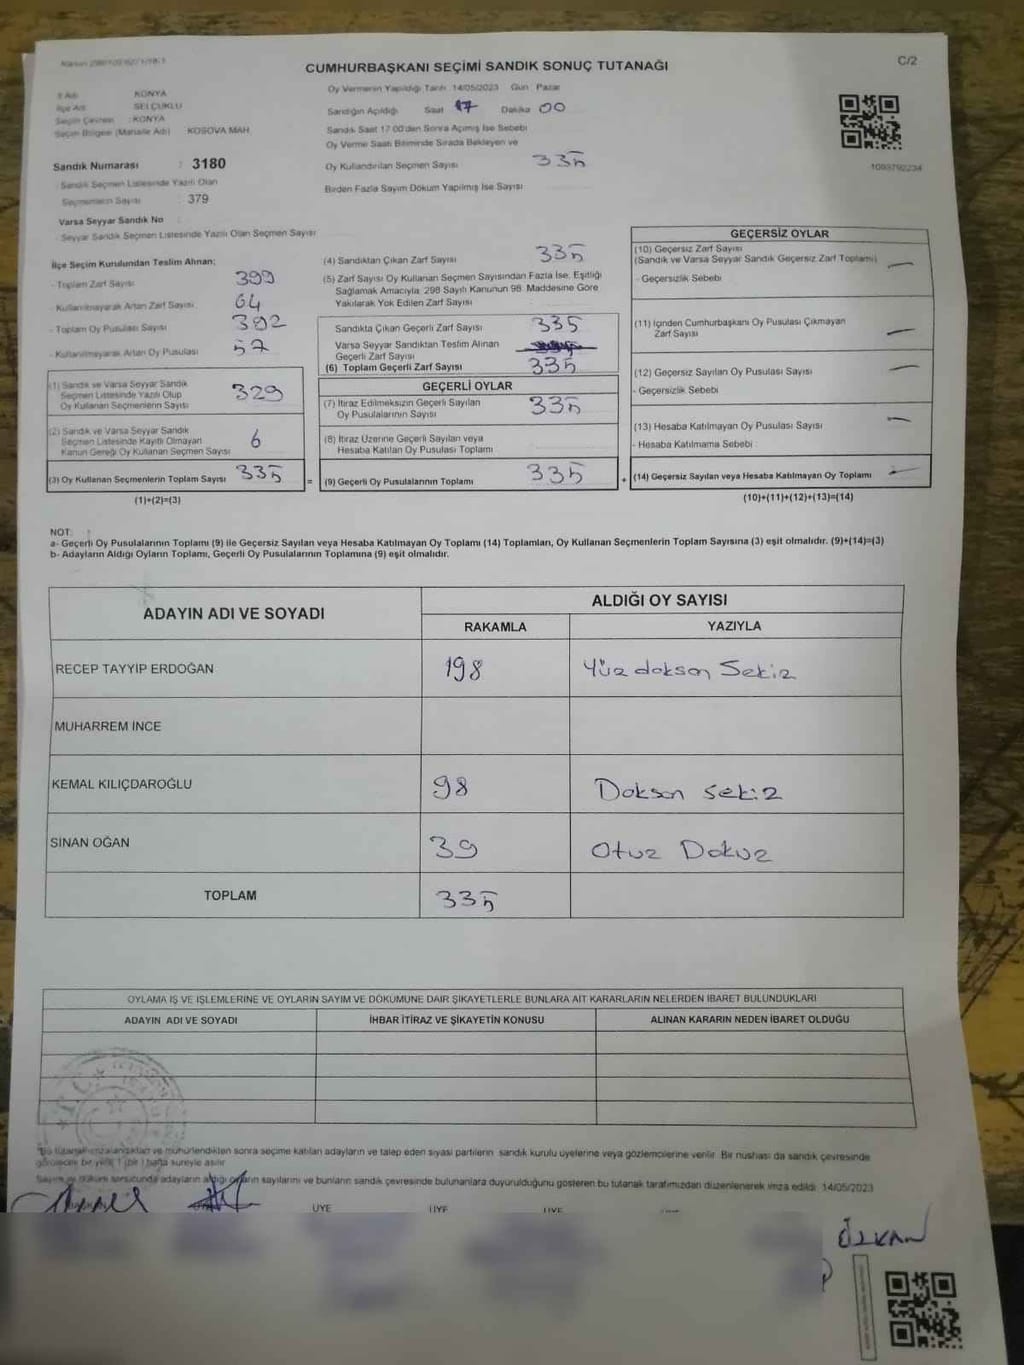 CUMHURBAŞKANI SEÇİMİ SANDIK SONUÇ TUTANAĞI
C/2
İl Adı : KONYA
İlçe Adı : SELÇUKLU
Seçim Çevresi : KONYA
Seçim Bölgesi (Mahalle Adı) : KOSOVA MAH.
Sandık Numarası : 3180
Sandık Seçmen Listesinde Yazılı Olan
Seçmenlerin Sayısı : 379
Varsa Seyyar Sandık No
Seyyar Sandık Seçmen Listesinde Yazılı Olan Seçmen Sayısı
Oy Vermenin Yapıldığı Tarih 14/05/2023 Gün Pazar
Sandığın Açıldığı Saat 17 Dakika 00
Sandık Saat 17:00'den Sonra Açılmış İse Sebebi
Oy Verme Saati Bitiminde Sırada Bekleyen ve
Oy Kullandırılan Seçmen Sayısı 335
Birden Fazla Sayım Döküm Yapılmış İse Sayısı
1093792234
İlçe Seçim Kurulundan Teslim Alınan:
- Toplam Zarf Sayısı 399
- Kullanılmayarak Artan Zarf Sayısı 64
- Toplam Oy Pusulası Sayısı 392
- Kullanılmayarak Artan Oy Pusulası 57
(1) Sandık ve Varsa Seyyar Sandık
Seçmen Listesinde Yazılı Olup
Oy Kullanan Seçmenlerin Sayısı 329
(2) Sandık ve Varsa Seyyar Sandık
Seçmen Listesinde Kayıtlı Olmayan
Kanun Gereği Oy Kullanan Seçmen Sayısı 6
(3) Oy Kullanan Seçmenlerin Toplam Sayısı 335
(1)+(2)=(3)
(4) Sandıktan Çıkan Zarf Sayısı 335
(5) Zarf Sayısı Oy Kullanan Seçmen Sayısından Fazla İse, Eşitliği
Sağlamak Amacıyla, 298 Sayılı Kanunun 98. Maddesine Göre
Yakılarak Yok Edilen Zarf Sayısı
Sandıkta Çıkan Geçerli Zarf Sayısı 335
Varsa Seyyar Sandıktan Teslim Alınan
Geçerli Zarf Sayısı
(6) Toplam Geçerli Zarf Sayısı 335
GEÇERLİ OYLAR
(7) İtiraz Edilmeksizin Geçerli Sayılan
Oy Pusulalarının Sayısı 335
(8) İtiraz Üzerine Geçerli Sayılan veya
Hesaba Katılan Oy Pusulası Toplamı
= (9) Geçerli Oy Pusulalarının Toplamı 335 +
GEÇERSİZ OYLAR
(10) Geçersiz Zarf Sayısı
(Sandık ve Varsa Seyyar Sandık Geçersiz Zarf Toplamı) —
- Geçersizlik Sebebi
(11) İçinden Cumhurbaşkanı Oy Pusulası Çıkmayan
Zarf Sayısı —
(12) Geçersiz Sayılan Oy Pusulası Sayısı —
- Geçersizlik Sebebi
(13) Hesaba Katılmayan Oy Pusulası Sayısı —
- Hesaba Katılmama Sebebi :
(14) Geçersiz Sayılan veya Hesaba Katılmayan Oy Toplamı —
(10)+(11)+(12)+(13)=(14)
NOT :
a- Geçerli Oy Pusulalarının Toplamı (9) ile Geçersiz Sayılan veya Hesaba Katılmayan Oy Toplamı (14) Toplamları, Oy Kullanan Seçmenlerin Toplam Sayısına (3) eşit olmalıdır. (9)+(14)=(3)
b- Adayların Aldığı Oyların Toplamı, Geçerli Oy Pusulalarının Toplamına (9) eşit olmalıdır.
ADAYIN ADI VE SOYADI
ALDIĞI OY SAYISI
RAKAMLA YAZIYLA
RECEP TAYYİP ERDOĞAN 198 Yüz doksan Sekiz
MUHARREM İNCE
KEMAL KILIÇDAROĞLU 98 Doksan sekiz
SİNAN OĞAN 39 Otuz Dokuz
TOPLAM 335
OYLAMA İŞ VE İŞLEMLERİNE VE OYLARIN SAYIM VE DÖKÜMÜNE DAİR ŞİKAYETLERLE BUNLARA AİT KARARLARIN NELERDEN İBARET BULUNDUKLARI
ADAYIN ADI VE SOYADI İHBAR İTİRAZ VE ŞİKAYETİN KONUSU ALINAN KARARIN NEDEN İBARET OLDUĞU
ve mühürlendikten sonra seçime katılan adayların ve talep eden siyasi partilerin sandık kurulu üyelerine veya gözlemcilerine verilir. Bir nüshası da sandık çevresinde
görülecek bir yere 1 (bir) hafta süreyle asılır.
Sayım ve döküm sonucunda adayların aldığı oyların sayılarını ve bunların sandık çevresinde bulunanlara duyurulduğunu gösteren bu tutanak tarafımızdan düzenlenerek imza edildi. 14/05/2023
ÜYE ÜYE ÜYE
ÖZKAN